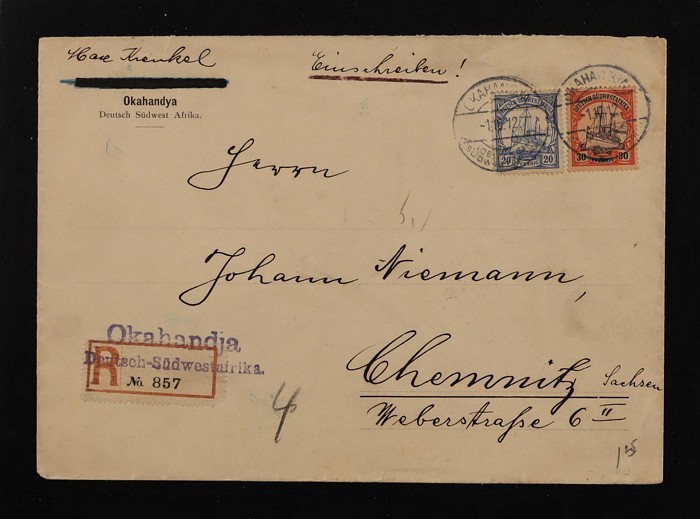 Max Krenkel
Einschreiben!
Okahandya
Deutsch Südwest Afrika.
DEUTSCH-SÜDWESTAFRIKA
20 20
DEUTSCH-SÜDWESTAFRIKA
30 30
Herrn
Johann Niemann,
Okahandja
Deutsch-Südwestafrika.
R No. 857
Chemnitz Sachsen
Weberstraße 6 II